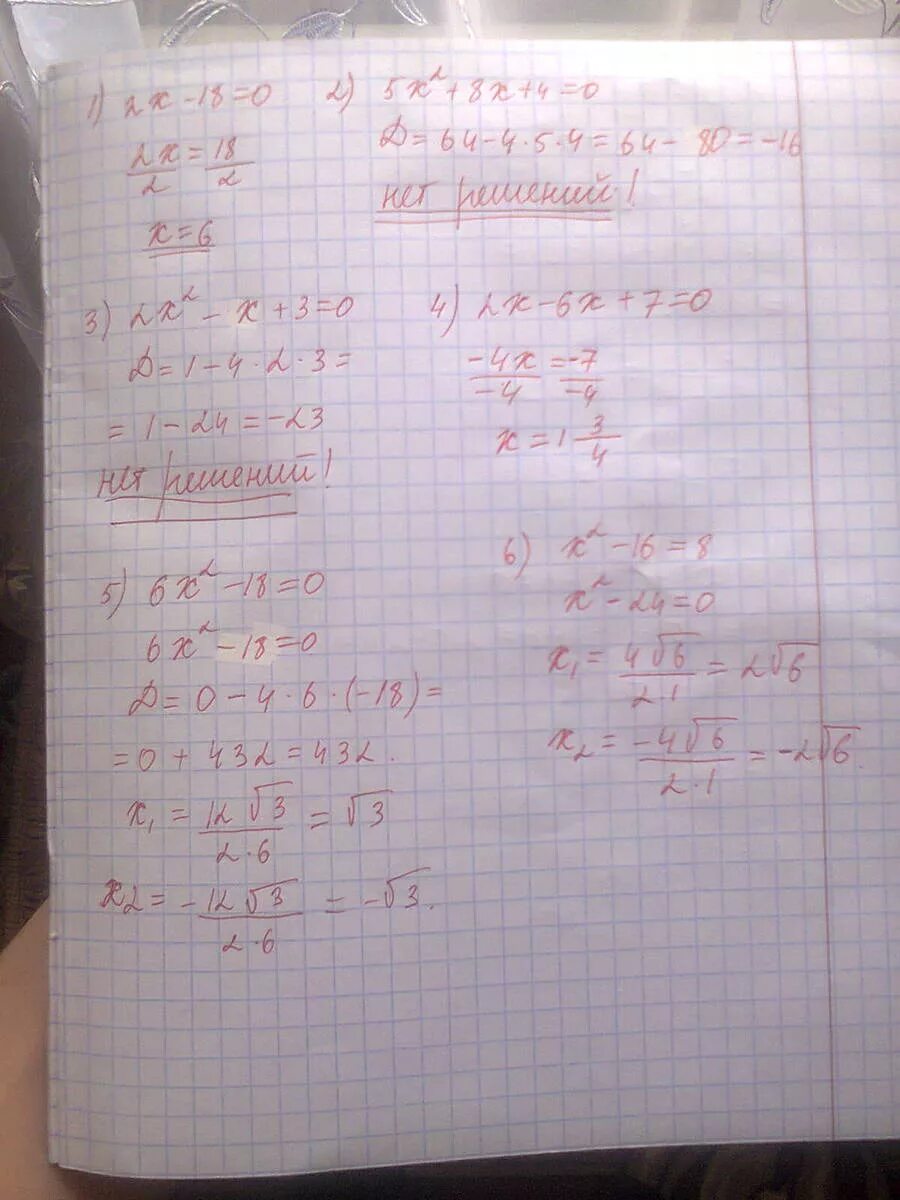 1) 2x - 18 = 0
2x/2 = 18/2
x = 6
2) 5x² + 8x + 4 = 0
D = 64 - 4 · 5 · 4 = 64 - 80 = -16
нет решений!
3) 2x² - x + 3 = 0
D = 1 - 4 · 2 · 3 =
= 1 - 24 = -23
нет решений!
4) 2x - 6x + 7 = 0
-4x/-4 = -7/-4
x = 1 3/4
5) 6x² - 18 = 0
6x² - 18 = 0
D = 0 - 4 · 6 · (-18) =
= 0 + 432 = 432.
x₁ = 12√3/2·6 = √3
x₂ = -12√3/2·6 = -√3.
6) x² - 16 = 8
x² - 24 = 0
x₁ = 4√6/2·1 = 2√6
x₂ = -4√6/2·1 = -2√6.